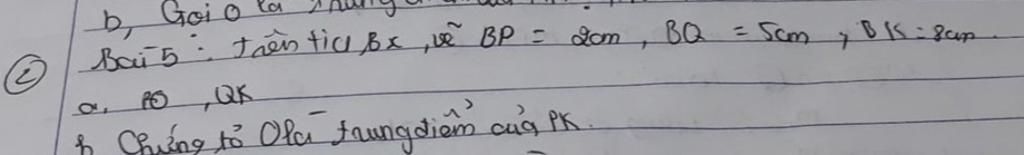 b, Gọi O là trung
② Bài 5 : Trên tia Bx, vẽ BP = 2cm, BQ = 5cm, BK = 8cm.
a, PQ, QK
b Chứng tỏ Q là trung điểm của PK.